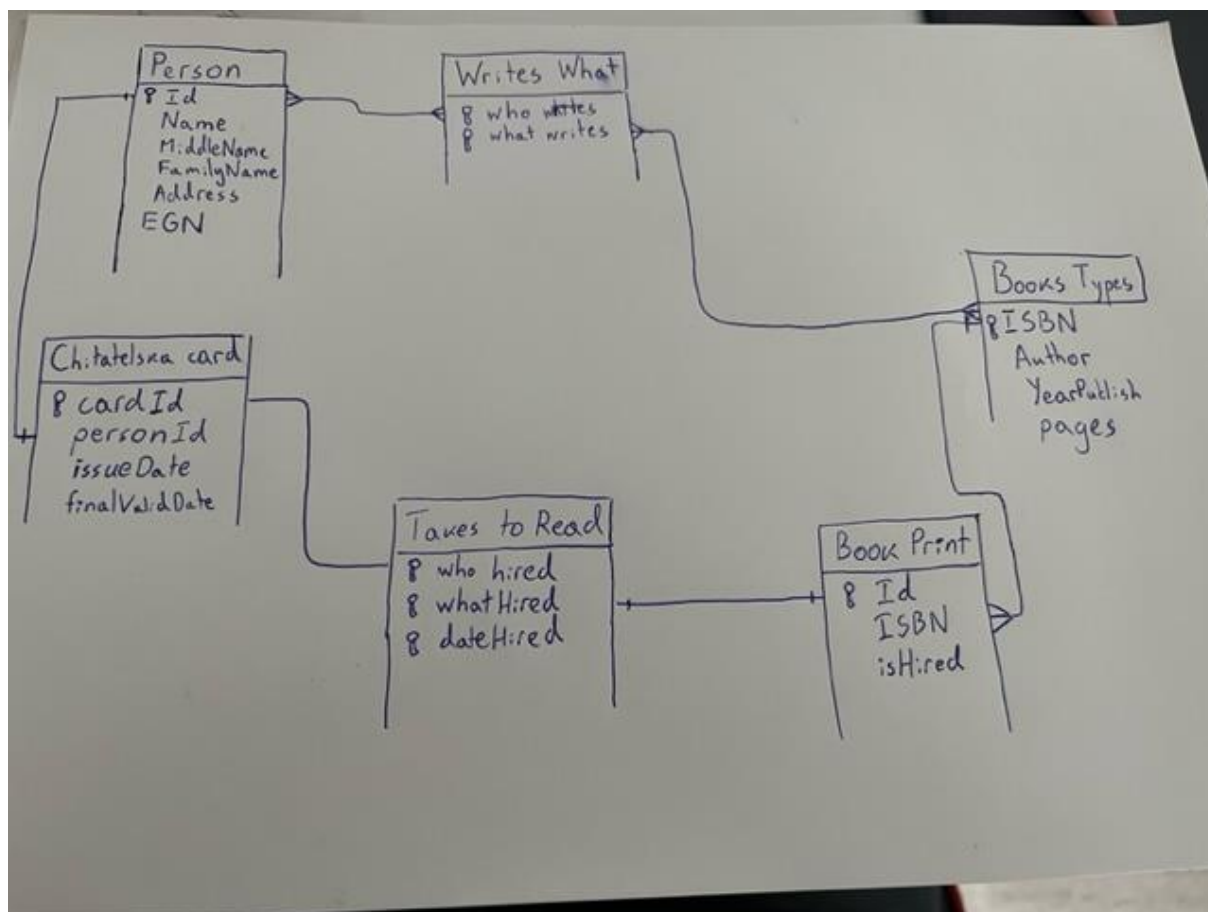 Person
Id
Name
MiddleName
FamilyName
Address
EGN
Writes What
who writes
what writes
Books Types
ISBN
Author
YearPublish
pages
Chitatelska card
cardId
personId
issueDate
finalValidDate
Takes to Read
who hired
whatHired
dateHired
Book Print
Id
ISBN
isHired